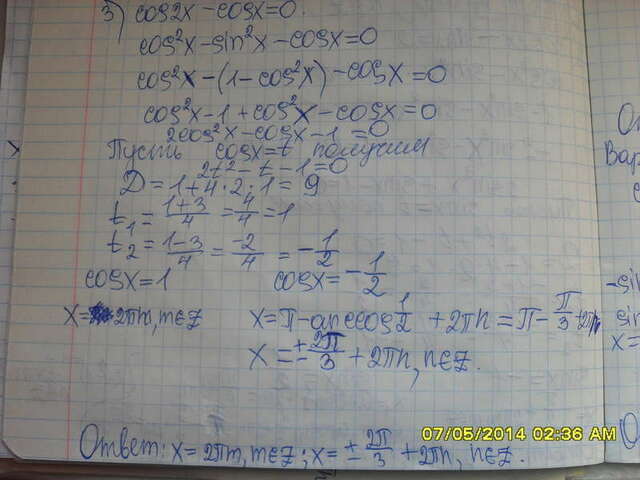 3) cos2x - cosx = 0.
cos²x - sin²x - cosx = 0
cos²x - (1 - cos²x) - cosx = 0
cos²x - 1 + cos²x - cosx = 0
2cos²x - cosx - 1 = 0
Пусть cosx = t получим
2t² - t - 1 = 0
D = 1 + 4 · 2 · 1 = 9
t₁ = (1+3)/4 = 4/4 = 1
t₂ = (1-3)/4 = -2/4 = -1/2
cosx = 1 cosx = -1/2
x = 2πm, m∈Z x = π - arccos 1/2 + 2πn = π - π/3 + 2πn
x = ± 2π/3 + 2πn, n∈Z.
Ответ: x = 2πm, m∈Z; x = ± 2π/3 + 2πn, n∈Z.
07/05/2014 02:36 AM
От
Вар
-sin
sin
x =